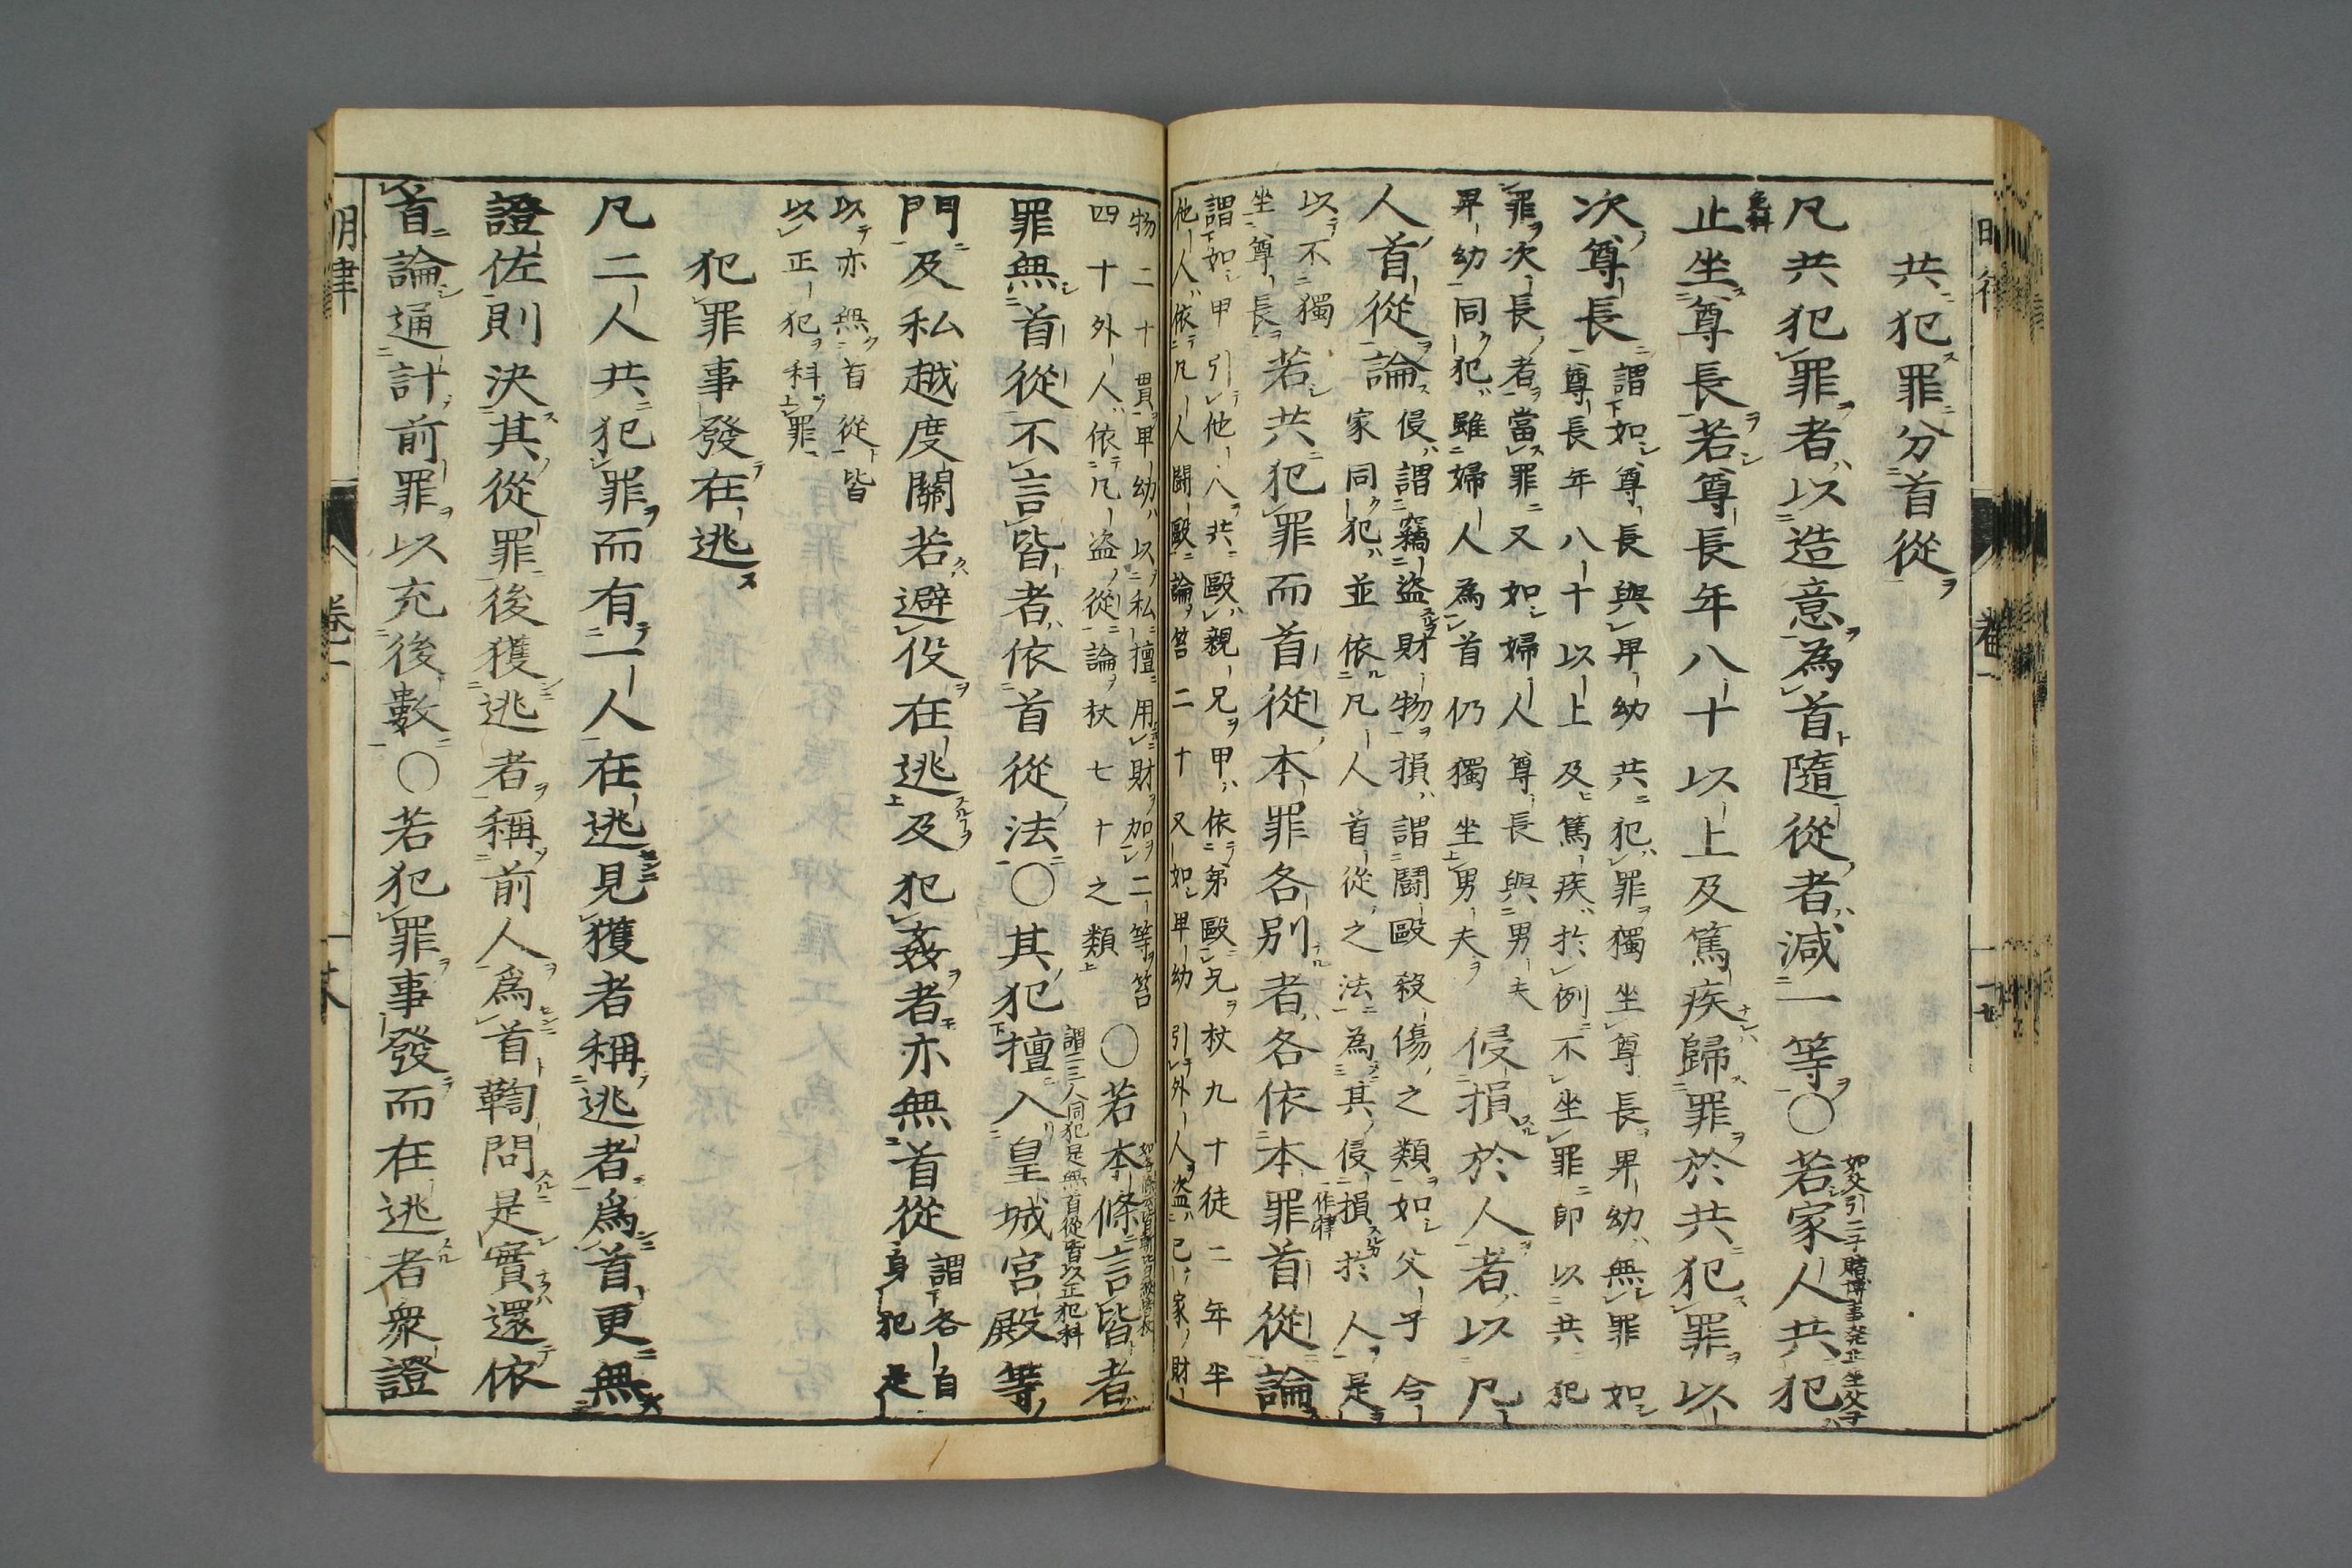 共犯罪分首從
凡共犯罪者以造意為首隨從者減一等〇若家人共犯
如父引二子賭博事発止坐父子免科
止坐尊長若尊長年八十以上及篤疾歸罪於共犯罪以
次尊長
謂如尊長與卑幼共犯罪獨坐尊長卑幼無罪如
尊長年八十以上及篤疾於例不坐罪即以共犯
罪次長者當罪又如婦人尊長與男夫
卑幼同犯雖婦人為首仍獨坐男夫
侵損於人者以凡
人首從論
侵謂竊盗財物損謂鬪毆殺傷之類如父子合
家同犯並依凡人首從之法為其侵損於人是
一作律
以不獨
坐尊長
若共犯罪而首從本罪各別者各依本罪首從論
謂如甲引他人共毆親兄甲依弟毆兄杖九十徒二年半
他人依凡人鬪毆論笞二十又如卑幼引外人盗己家財
物二十貫卑幼以私擅用財加二等笞
四十外人依凡盗從論杖七十之類
〇若本條言皆者
罪無首從不言皆者依首從法〇其犯擅入皇城宮殿等
謂二三人同犯是無首從皆以正犯科
門及私越度關若避役在逃及犯姦者亦無首從
謂各自
身犯是
以亦無首從皆
以正犯科罪
犯罪事發在逃
凡二人共犯罪而有一人在逃見獲者稱逃者為首更無
證佐則決其從罪後獲逃者稱前人為首鞫問是實還依
首論通計前罪以充後數〇若犯罪事發而在逃者衆證
明律
卷一